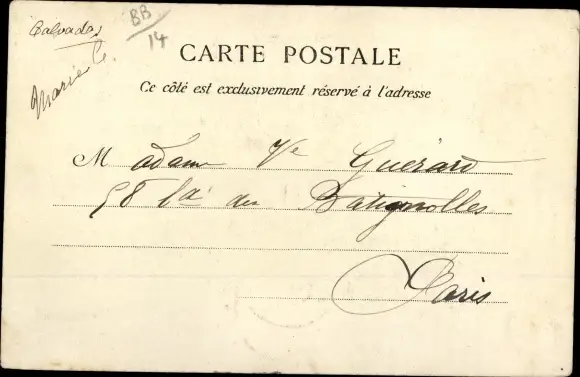 Calvados
BB
14
Marie G.
CARTE POSTALE
Ce côté est exclusivement réservé à l'adresse
Madame Vve Guérard
58 bd des Batignolles
Paris